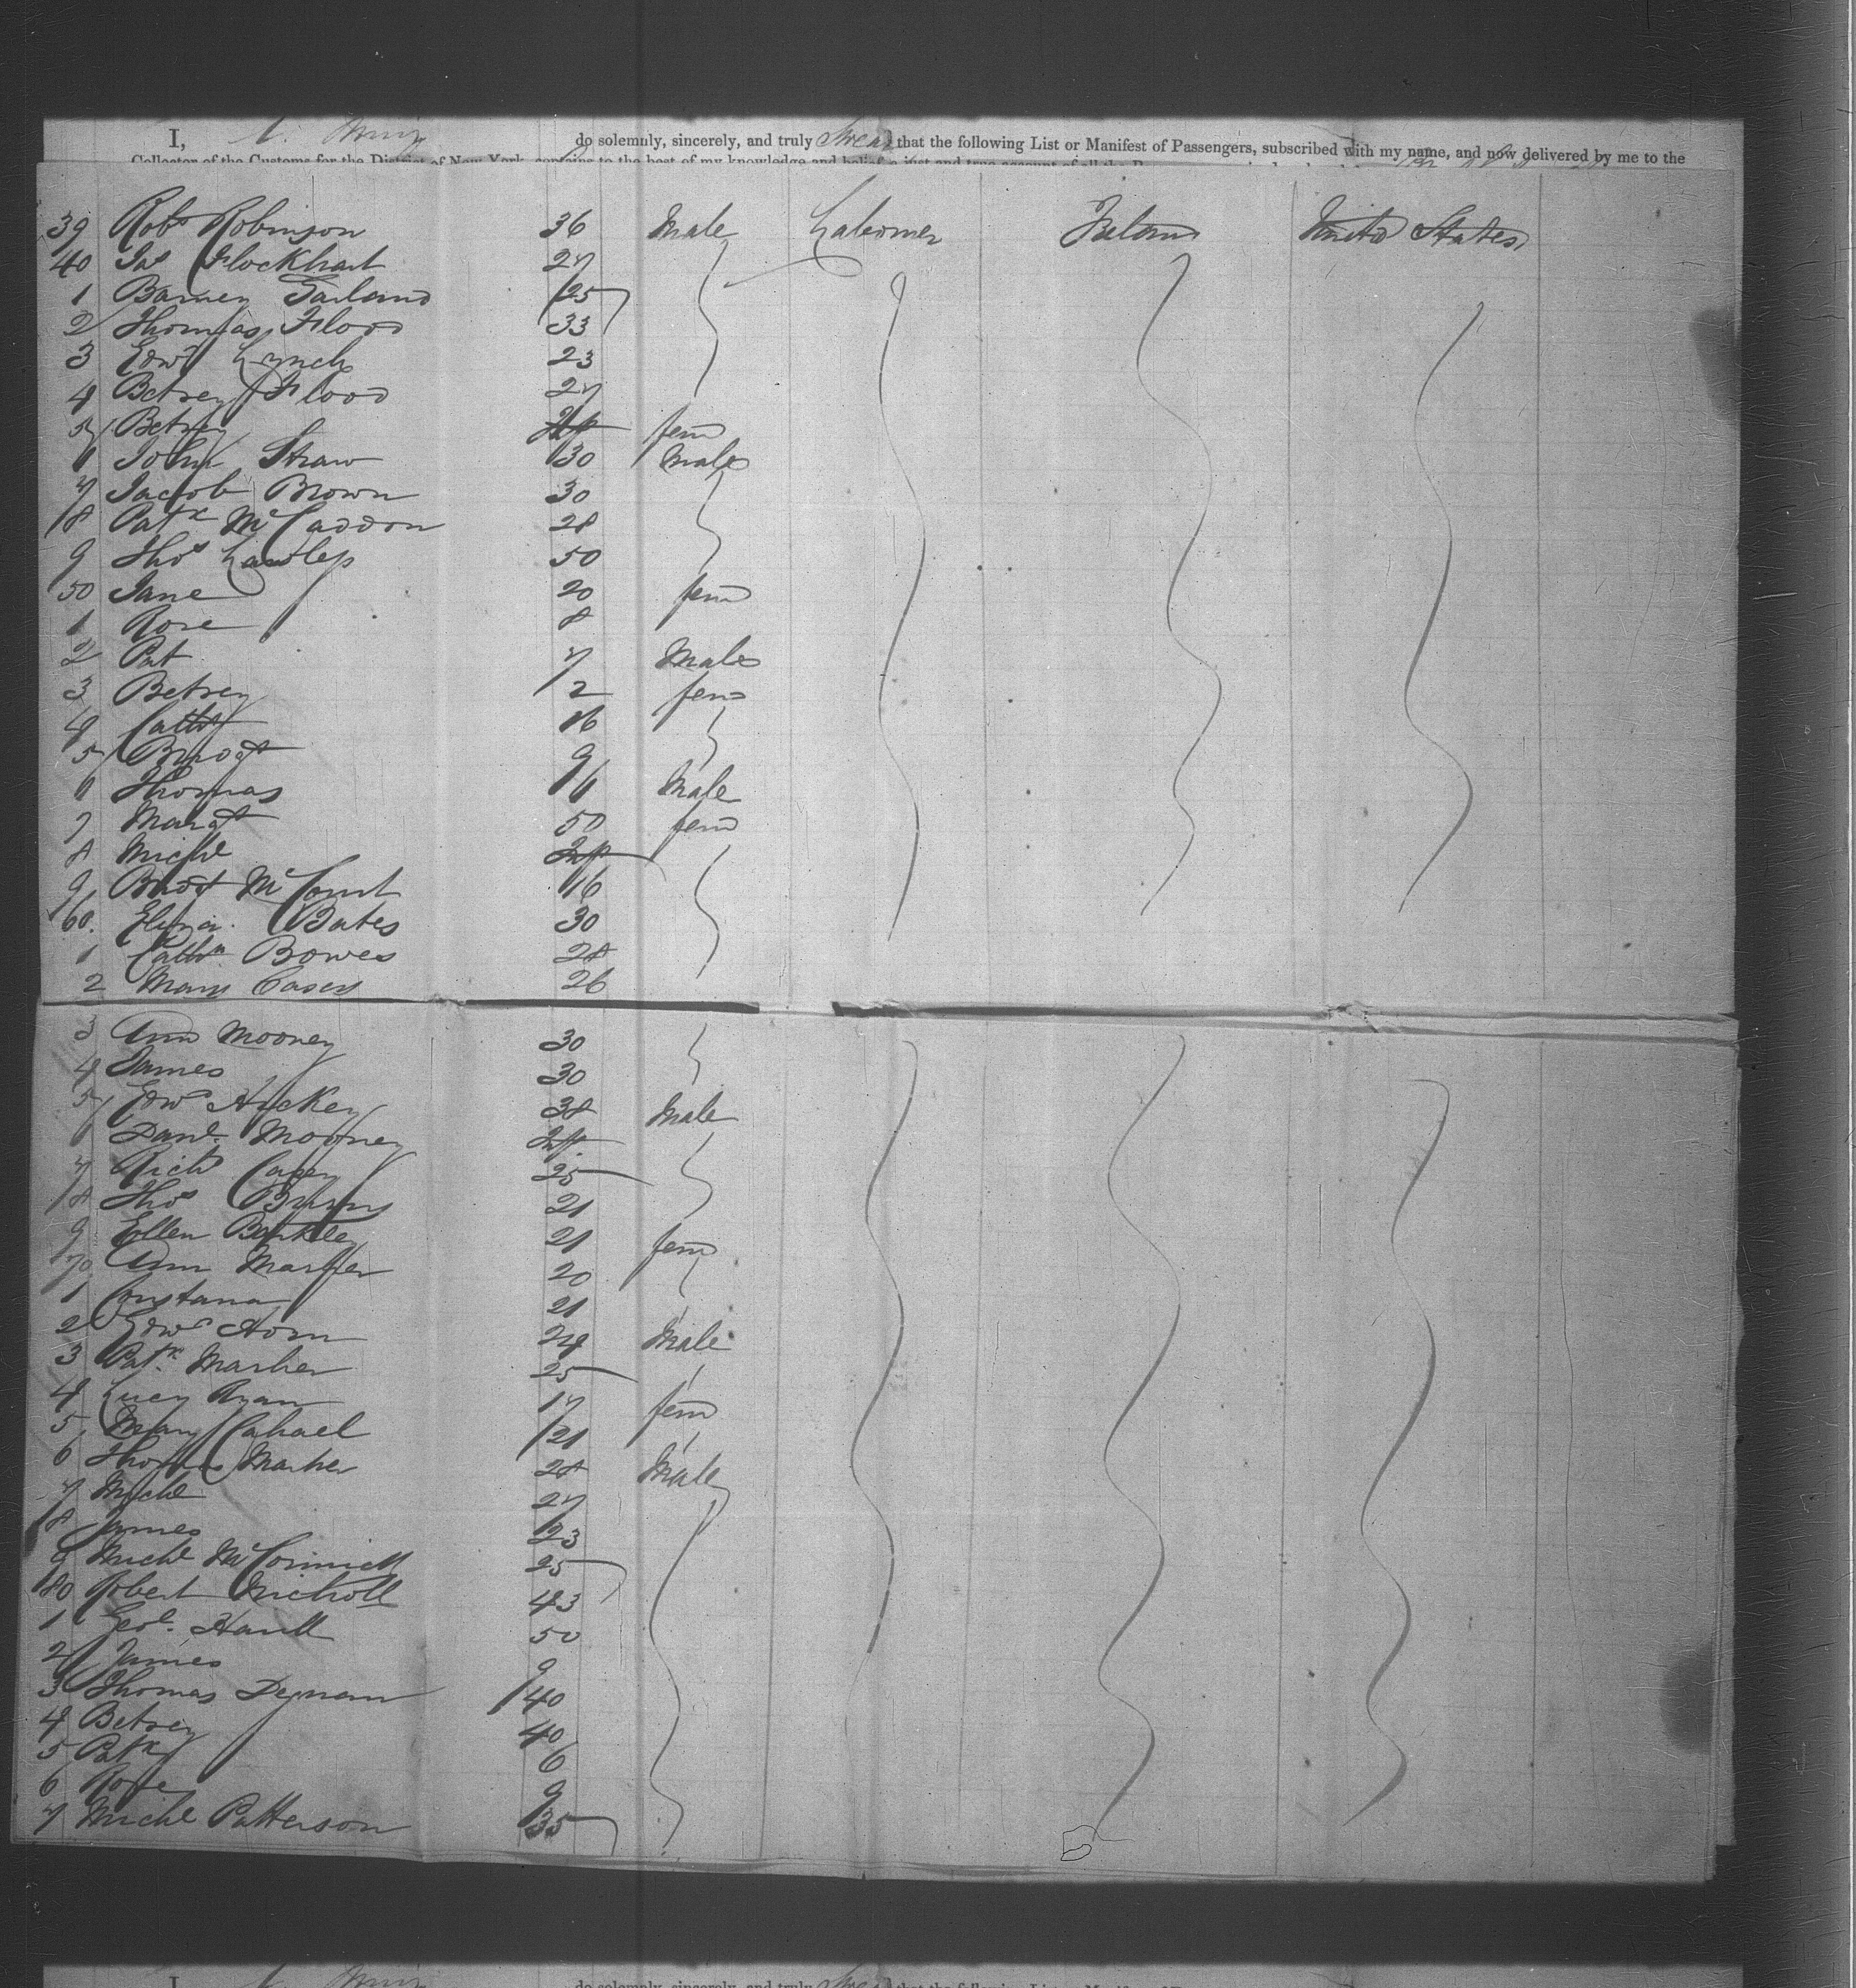 I, do solemnly, sincerely, and truly Swear that the following List or Manifest of Passengers, subscribed with my name, and now delivered by me to the
Collector of the Customs for the District of New York, contains to the best of my knowledge and belief a just and true account of all the
39 Robt Robinson 36 Male Labourer Ireland United States
40 Jas Flockhart 27
1 Barney Garland 25
2 Thomas Flood 33
3 Edwd Lynch 23
4 Betsey Flood 27
5 Betsey Inft fem
6 John Straw 30 Males
7 Jacob Brown 30
8 Patk McCaddon 28
9 Thos 50
50 Jane 20 fem
1 Rose 8
2 Pat 7 Males
3 Betsey 2 fem
4 Cath 16
5 Bridgt 9
6 Thomas 6 Male
7 Margt 50 fem
8 Michl Inft
9 Bridgt McCourt 16
60. Eliza. Bates 30
1 Cathn Bowes 28
2 Mary Casey 26
3 Ann Mooney 30
4 James 30
5 Edwd Hickey 38 Male
6 Danl. Mooney Inft.
7 Richd Casey 25
8 Thos Burns 21
9 Ellen 21 fem
70 Ann Marher 20
1 Constana 21
2 Edwd Horn 24 Male
3 Patk. Marher 25
4 Lucy Ryan 17 fem
5 Mary Cahael 21
6 Thomas Marher 28 Male
7 Michl 27
8 James 23
9 Michl McCormick 25
80 Robert Nicholl 43
1 Geo. 50
2 James 9
3 Thomas 40
4 Betsey 40
5 Patk 6
6 Rose 9
7 Michl Patterson 35
I, do solemnly, sincerely, and truly Swear that the following List or